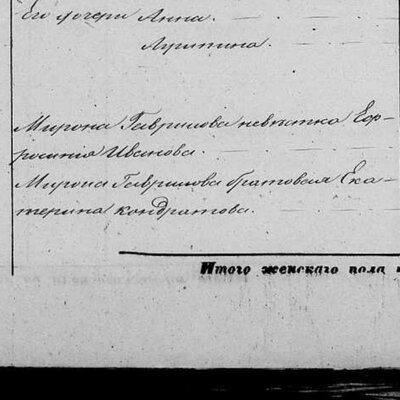 Его дочери Анна.
Агрипина.
Мирона Гаврилова невѣстка Еф-
росинія Иванова.
Мирона Гаврилова братовая Ека-
терина кондратова.
Итого женскаго пола